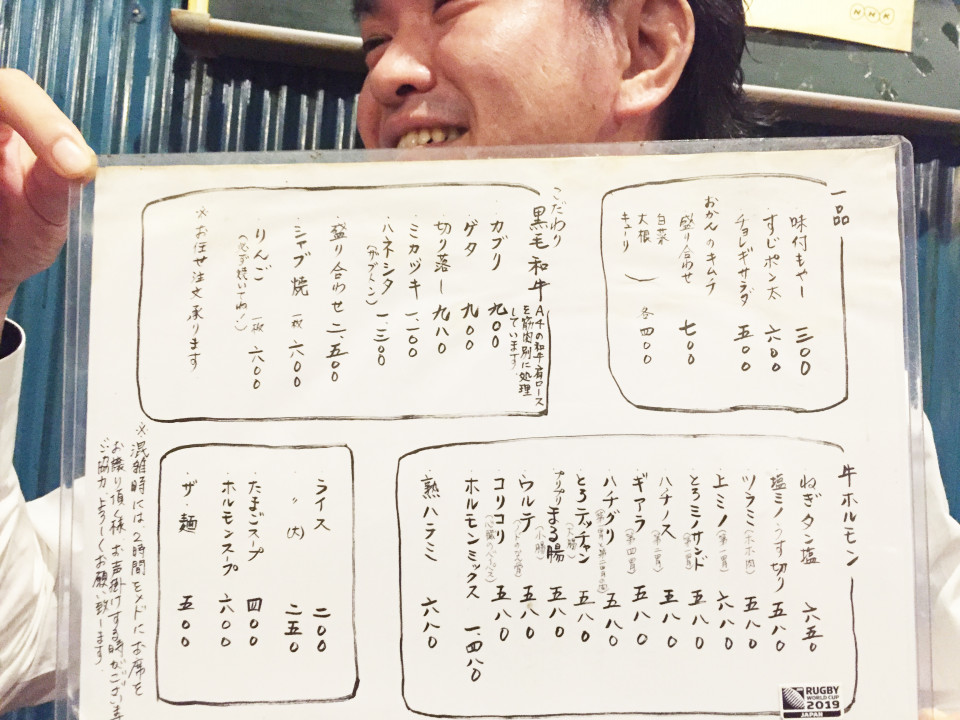 NHK
一品
味付もやし 三〇〇
すじポン太 六〇〇
チョレギサラダ 五〇〇
おかんのキムチ
盛り合わせ 七〇〇
白菜
大根
キューリ 各 四〇〇
こだわり
黒毛和牛
A4の和牛肩ロース
を筋肉別に処理
しています。
カブリ 九〇〇
ゲタ 九〇〇
切り落し 九八〇
ミカヅキ 一、一〇〇
ハネシタ 一、三〇〇
(ザブトン)
盛り合わせ 二、五〇〇
シャブ焼 一枚 六〇〇
りんご 一枚 六〇〇
(必ず焼いてね!)
※お任せ注文承ります
牛ホルモン
ねぎタン塩 六五〇
塩ミノうす切り 五八〇
ツラミ(ホホ肉) 五八〇
上ミノ(第一胃) 六八〇
とろミノサンド(第一胃) 五八〇
ハチノス(第二胃) 五八〇
ギアラ(第四胃) 五八〇
ハチグリ 五八〇
とろテッチャン(大腸) 五八〇
プリプリまる腸(小腸) 五八〇
ウルテ 五八〇
コリコリ 五八〇
ホルモンミックス 一、四八〇
熟ハラミ 六八〇
ライス 二〇〇
〃(大) 二五〇
たまごスープ 四〇〇
ホルモンスープ 六〇〇
ザ・麺 五〇〇
※混雑時には、2時間をメドにお席を
お譲り頂く様お声掛けする時がございます
ご協力よろしくお願い致します。
RUGBY
WORLD CUP
2019
JAPAN